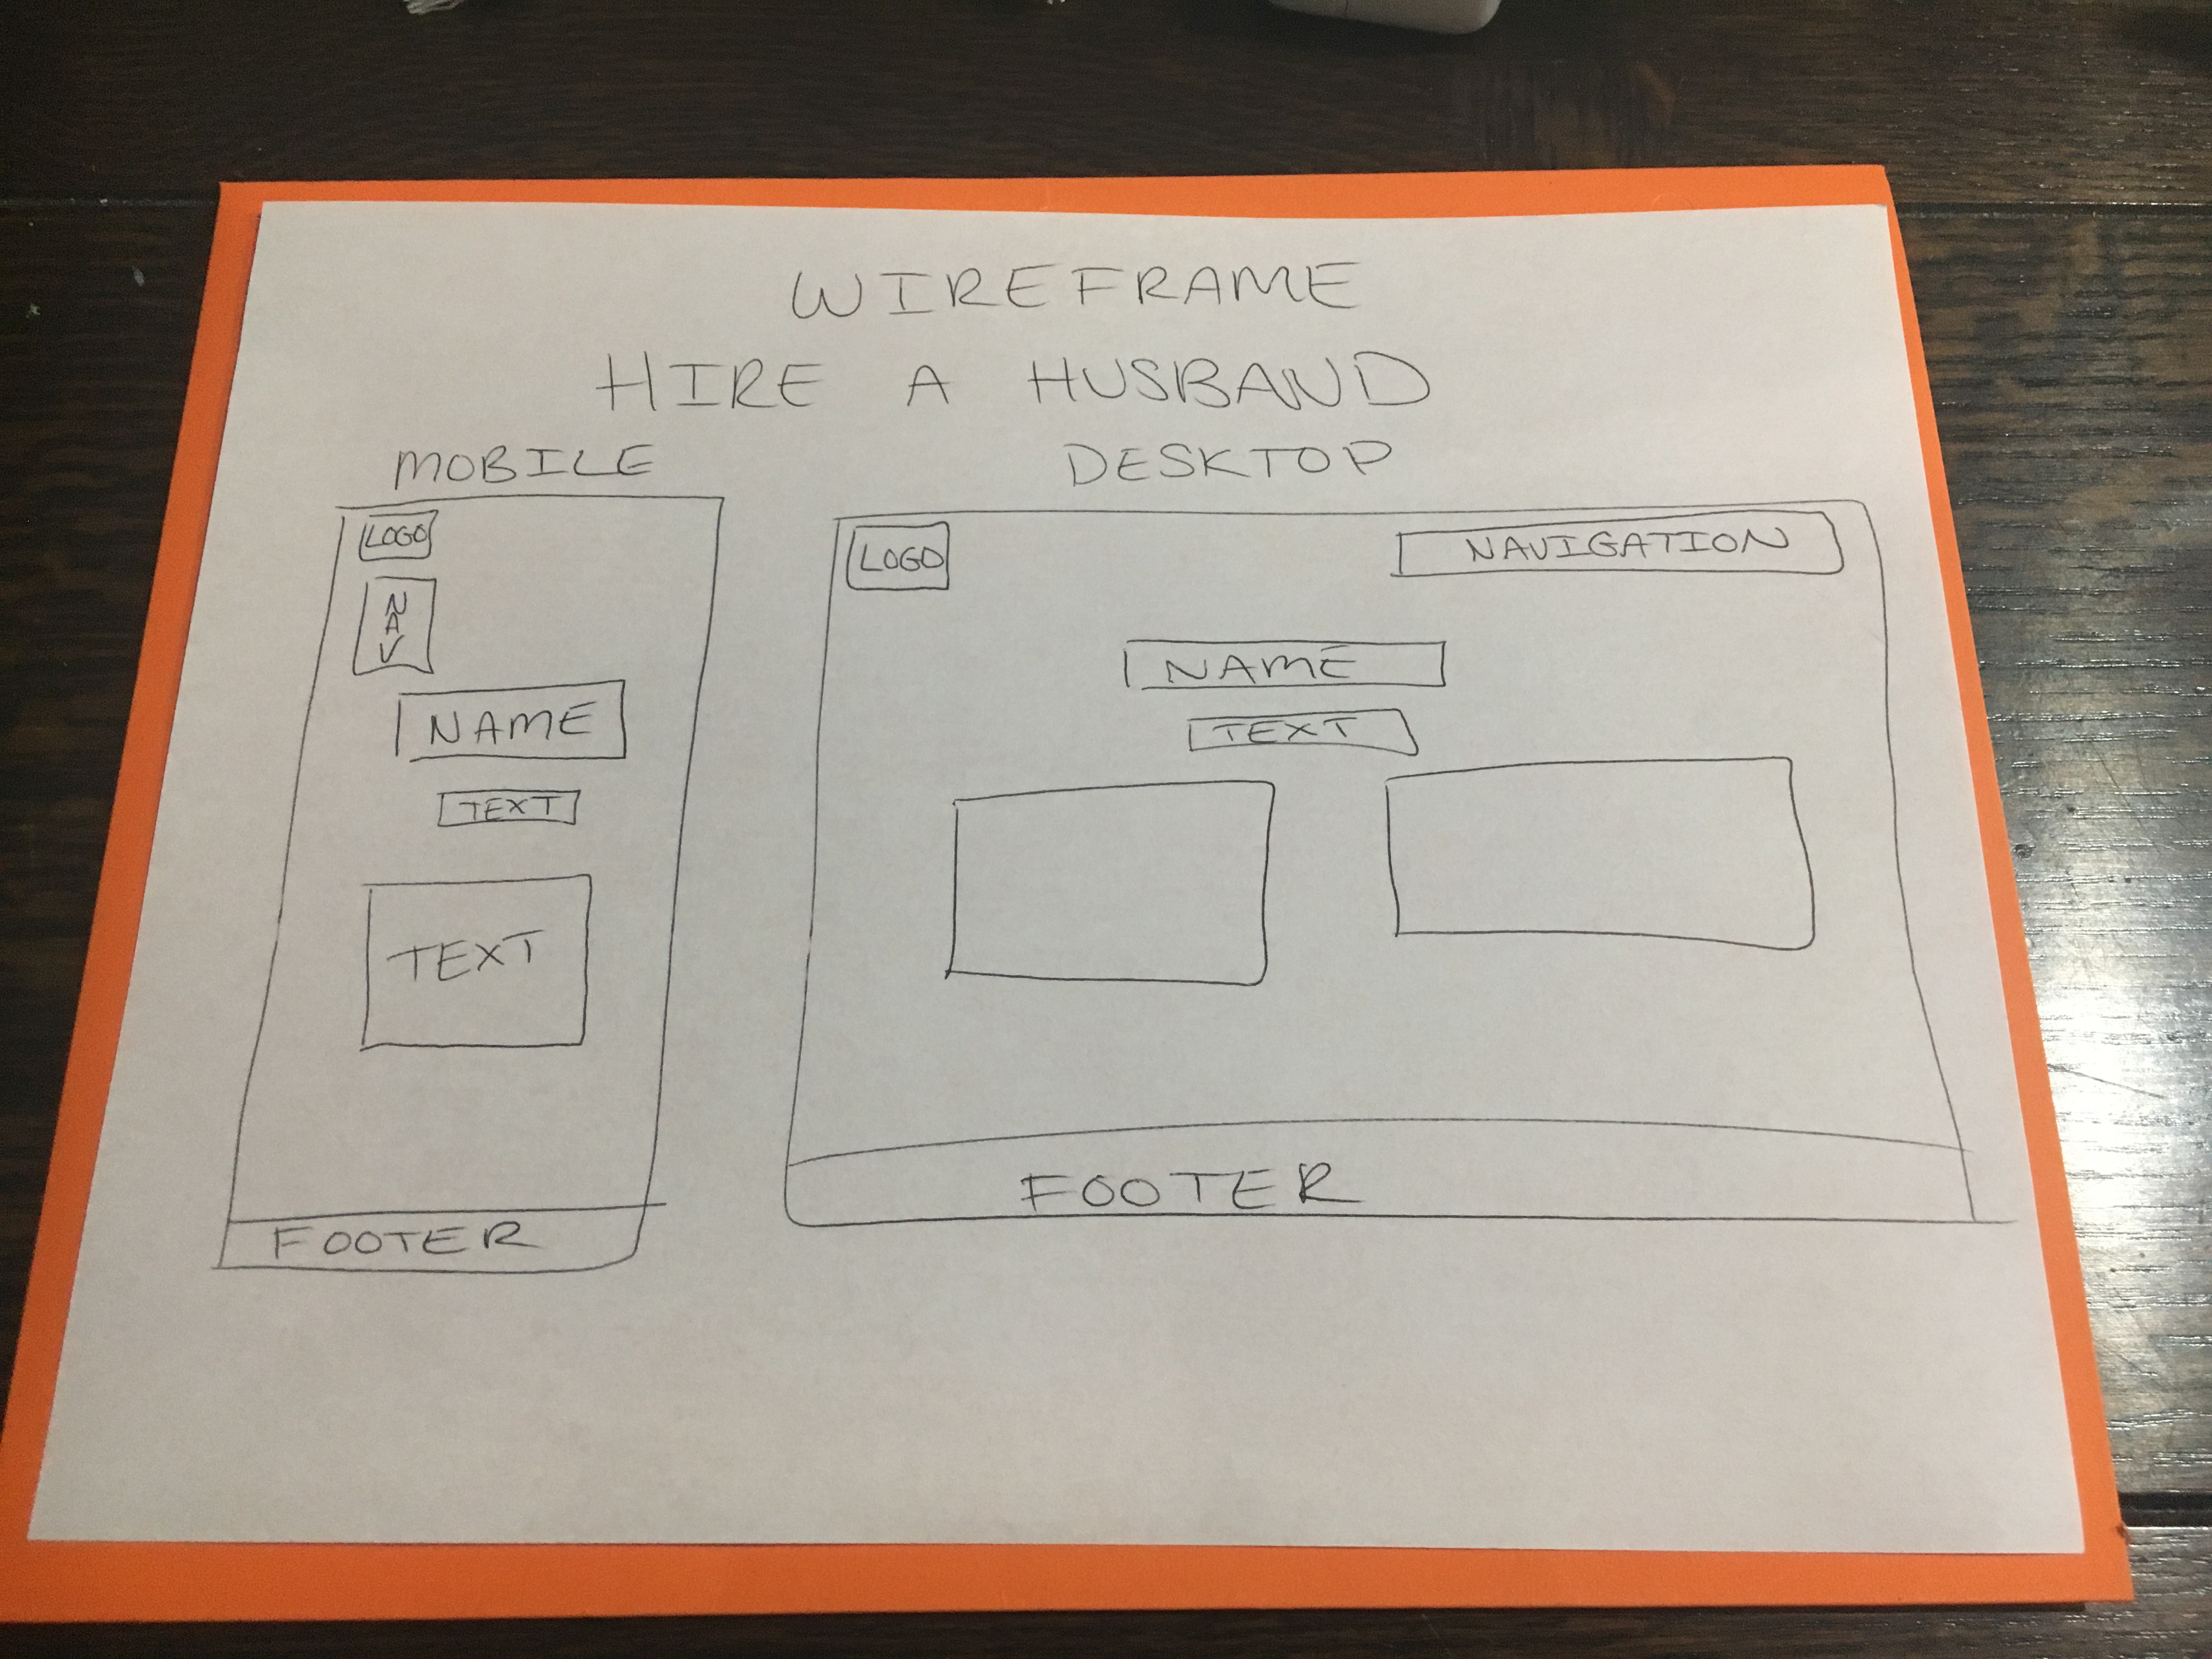 WIREFRAME
HIRE A HUSBAND
MOBILE
LOGO
NAV
NAME
TEXT
TEXT
FOOTER
DESKTOP
LOGO
NAVIGATION
NAME
TEXT
FOOTER